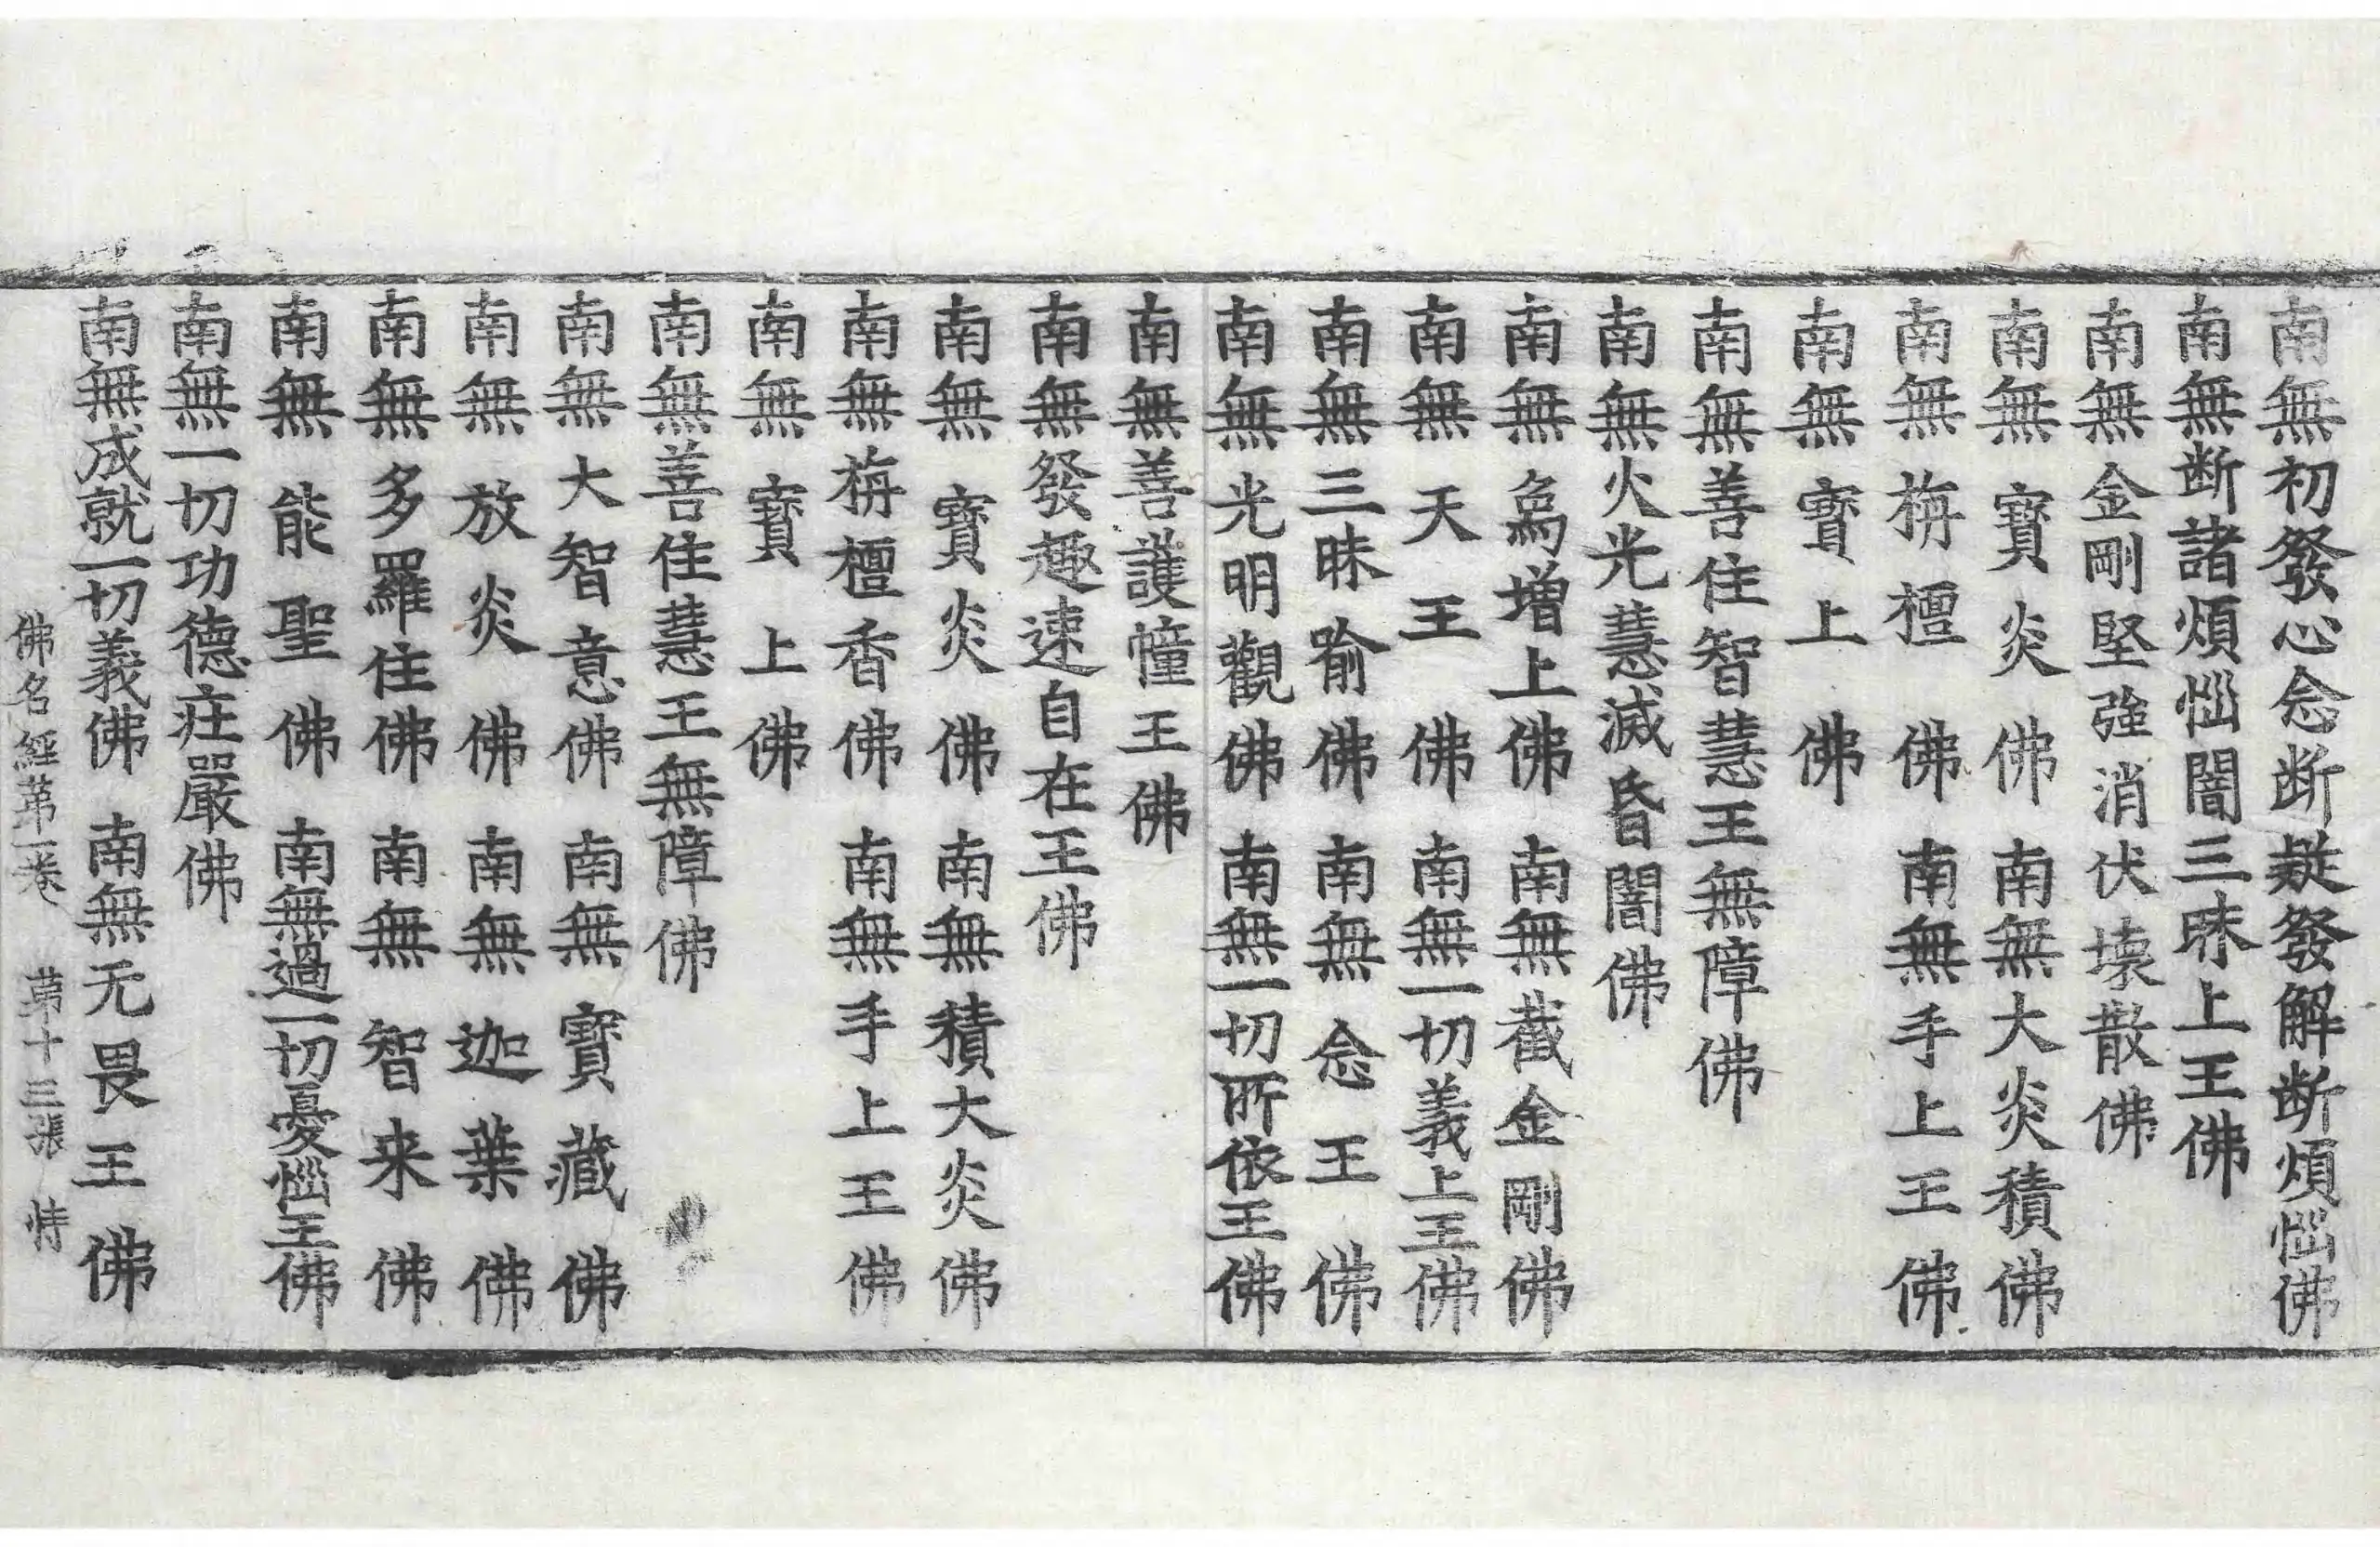 南無初發心念断疑發解断煩惱佛
南無断諸煩惱闇三昧上王佛
南無金剛堅強消伏壞散佛
南無寶炎佛 南無大炎積佛
南無栴檀佛 南無手上王佛
南無寶上佛
南無善住智慧王無障佛
南無火光慧滅昏闇佛
南無為增上佛 南無截金剛佛
南無天王佛 南無一切義上王佛
南無三昧喻佛 南無念王佛
南無光明觀佛 南無一切所依王佛
南無善護幢王佛
南無發趣速自在王佛
南無寶炎佛 南無積大炎佛
南無栴檀香佛 南無手上王佛
南無寶上佛
南無善住慧王無障佛
南無大智意佛 南無寶藏佛
南無放炎佛 南無迦葉佛
南無多羅住佛 南無智来佛
南無能聖佛 南無過一切憂惱王佛
南無一切功德莊嚴佛
南無成就一切義佛 南無无畏王佛
佛名經第一卷 第十三張 恃